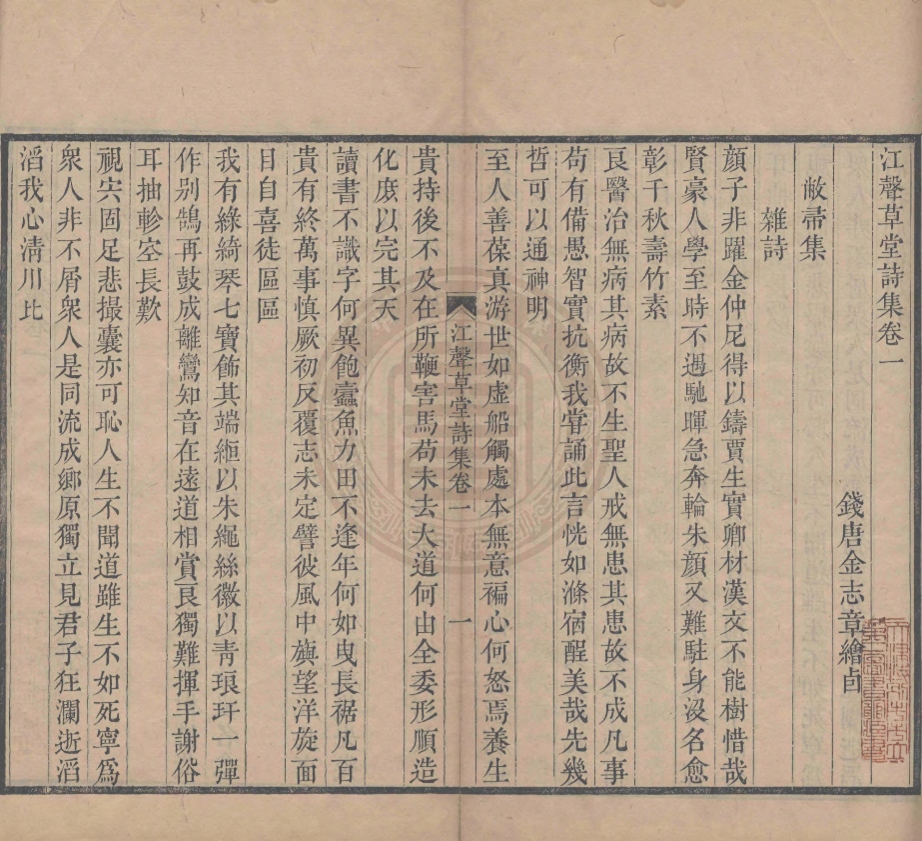 江聲草堂詩集卷一
錢唐金志章繪卣
敝帚集
雜詩
顏子非躍金仲尼得以鑄賈生實卿材漢文不能樹惜哉
賢豪人學至時不遇馳暉急奔輪朱顏又難駐身沒名愈
彰千秋壽竹素
良醫治無病其病故不生聖人戒無患其患故不成凡事
苟有備愚智實抗衡我嘗誦此言恍如滌宿酲美哉先幾
哲可以通神明
至人善葆真游世如虛船觸處本無意褊心何怒焉養生
江聲草堂詩集卷一 一
貴持後不及在所鞭害馬苟未去大道何由全委形順造
化庶以完其天
讀書不識字何異飽蠹魚力田不逢年何如曳長裾凡百
貴有終萬事慎厥初反覆志未定譬彼風中旟望洋旋面
目自喜徒區區
我有綠綺琴七寶飾其端緪以朱繩絲徽以青琅玕一彈
作別鵠再鼓成離鸞知音在遠道相賞良獨難揮手謝俗
耳抽軫空長歎
視宍固足悲撮囊亦可恥人生不聞道雖生不如死寧為
衆人非不屑衆人是同流成鄉原獨立見君子狂瀾逝滔
滔我心清川比